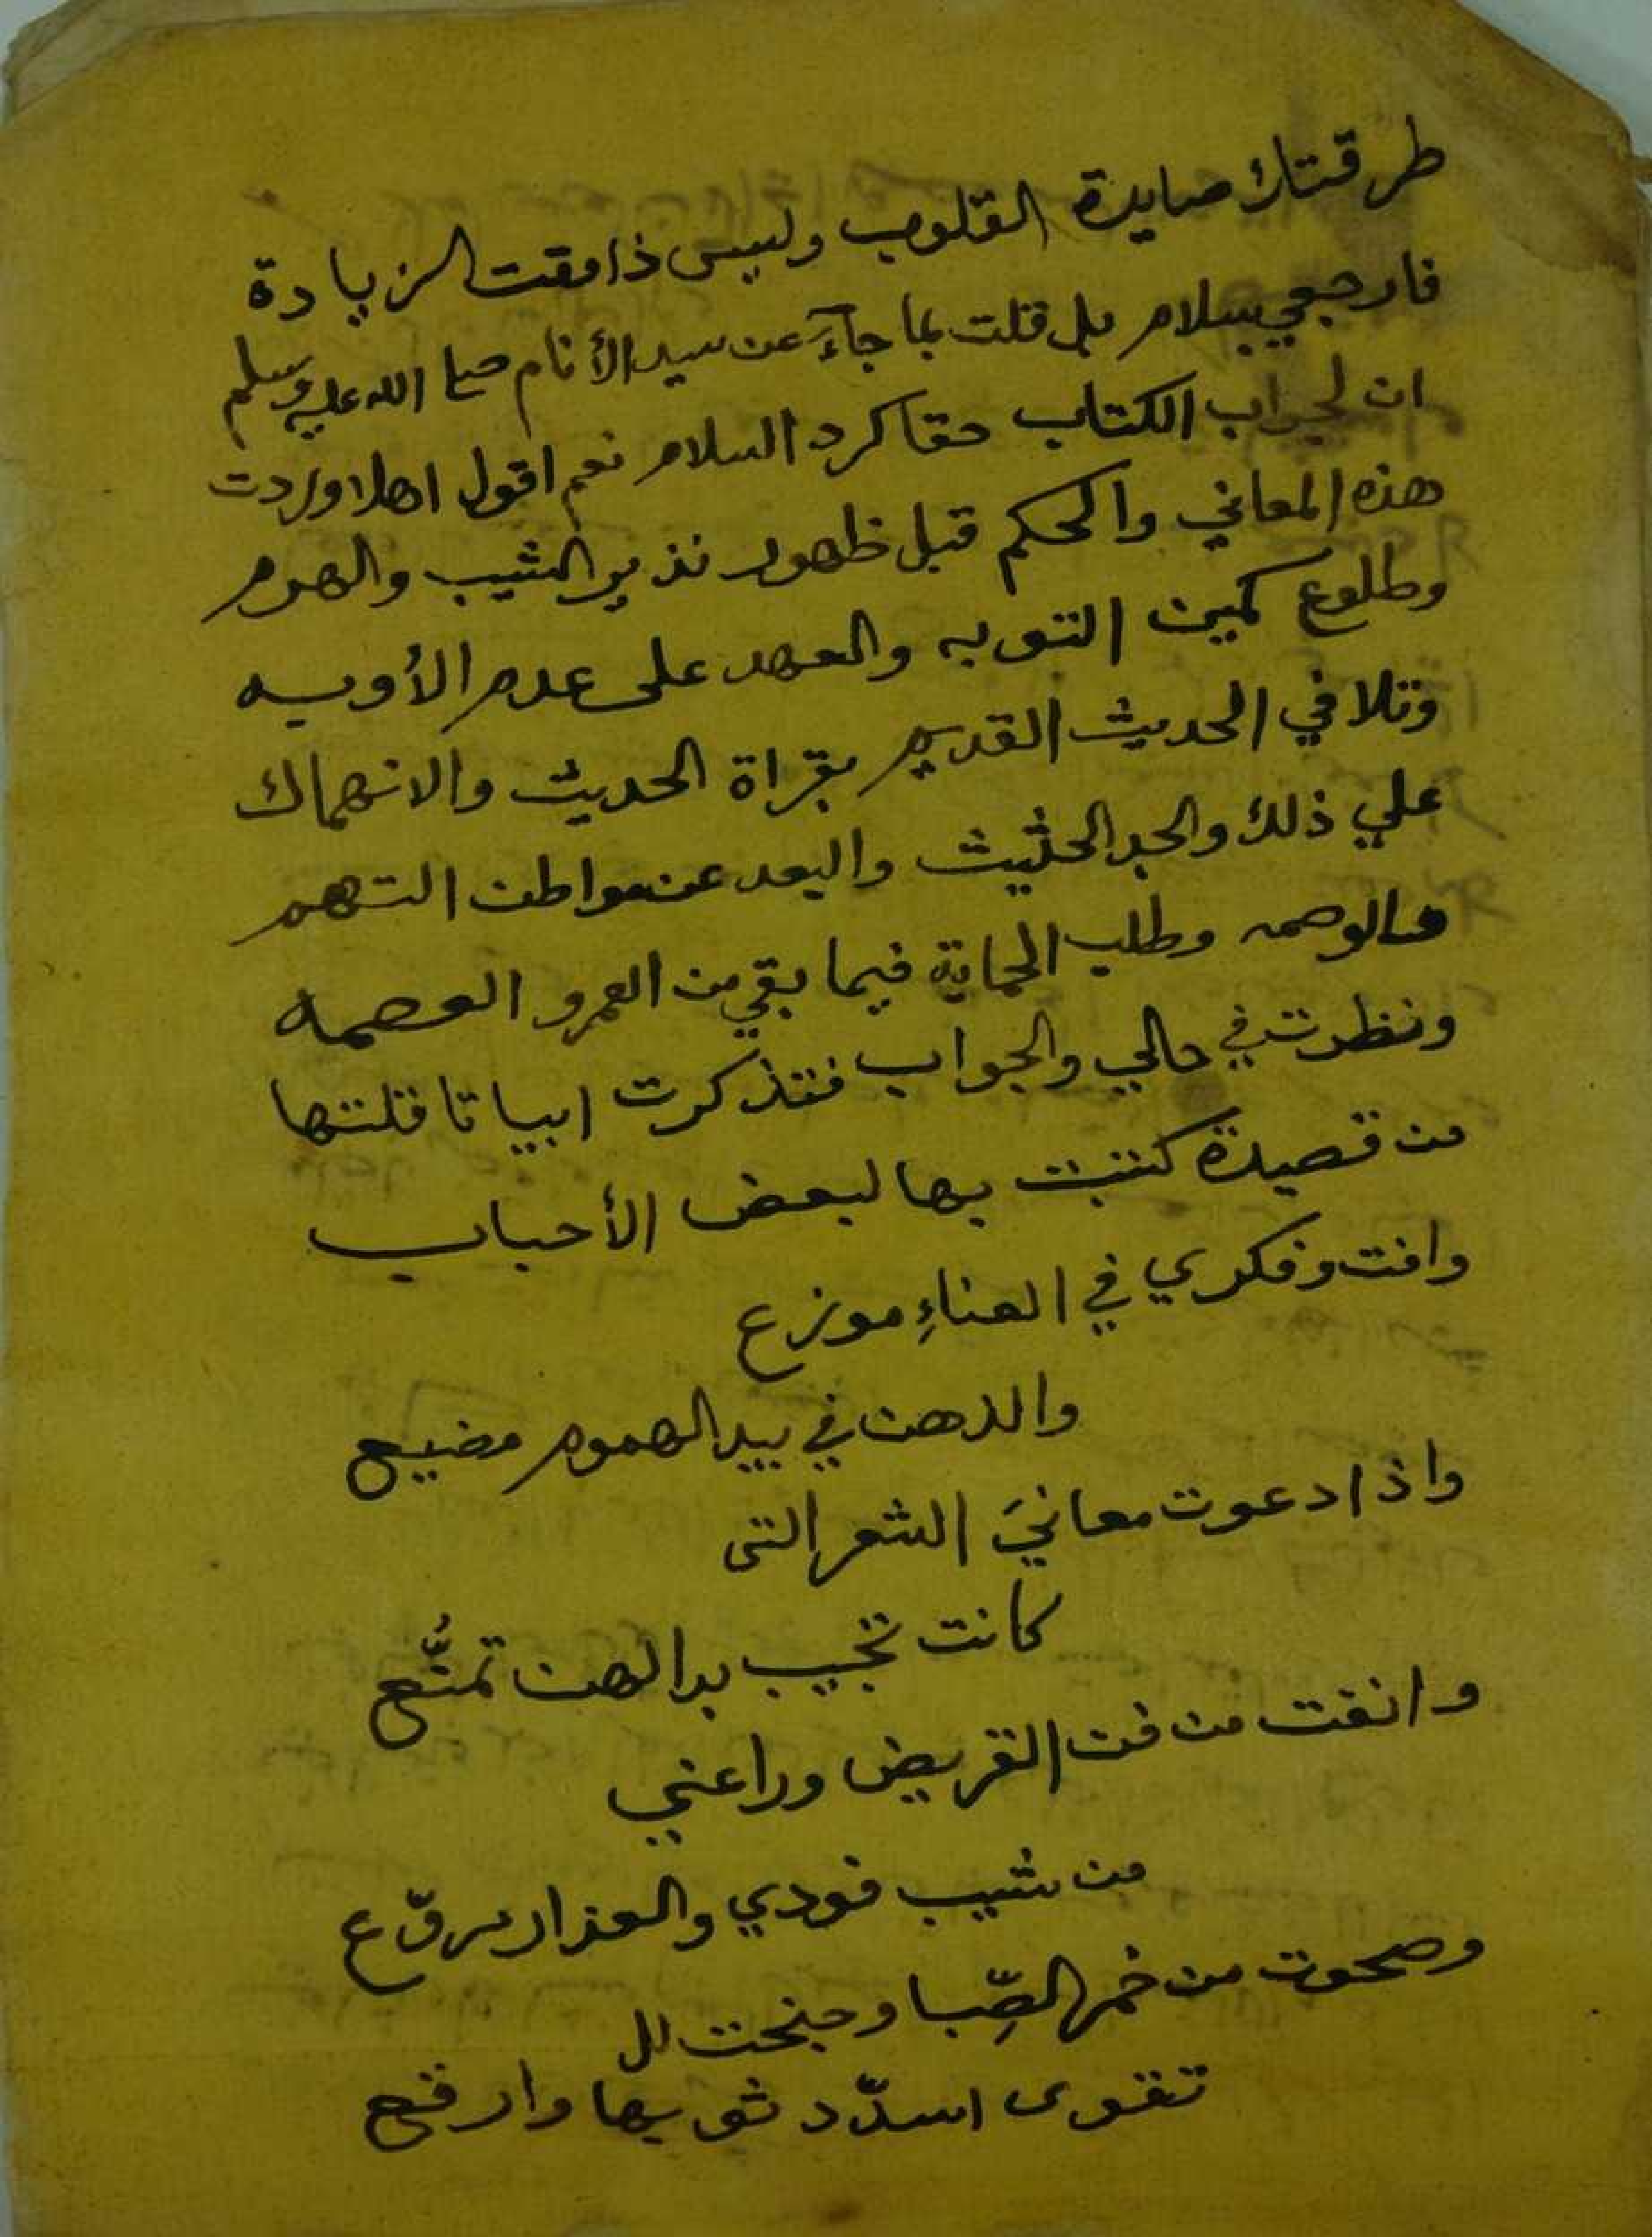 طرقتك صايدة القلوب وليس ذا وقت الزيادة
فارجعي بسلام بل قلت بما جآء عن سيد الأنام صلى الله عليه وسلم
ان لجواب الكتاب حقا كرد السلام نعم اقول اهلا وردت
هذه المعاني والحكم قبل ظهور نذير الشيب والهرم
وطلوع كمين التوبه والعهد على عدم الأوبه
وتلافي الحديث القديم بقراة الحديث والانهماك
علي ذلك والجد الحثيث والبعد عن مواطن التهم
والوصمه وطلب الحماية فيما بقي من العمر والعصمه
ونظرت في حالي والجواب فتذكرت ابياتا قلتها
من قصيدة كتبت بها لبعض الأحباب
وافت وفكري في العناءِ موزع
والذهن في بيد الهموم مضيع
واذا دعوت معانيَ الشعر التى
كانت تجيب بدا لهن تمنُّع
وانفت من فن القريض وراعني
من شيب فودي والعذار مروّع
وصحوت من خمر الصِّبا وجنحت لل
تقوى اسدّد ثوبها وارقع